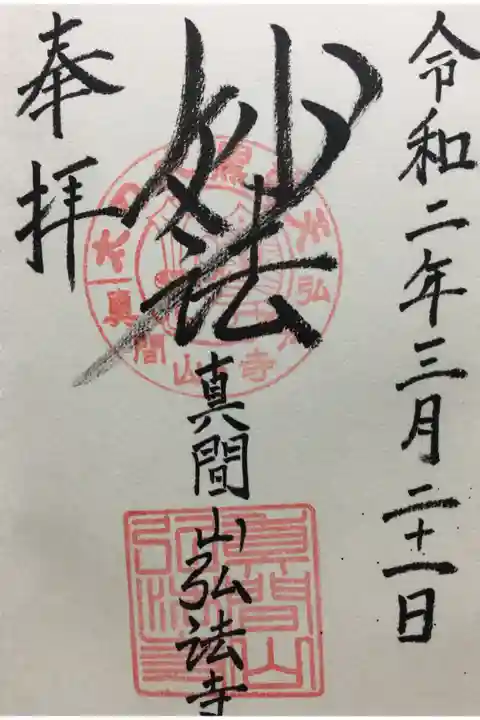 令和二年三月二十一日
妙法
真間山弘法寺
奉拝
真間山
弘法寺